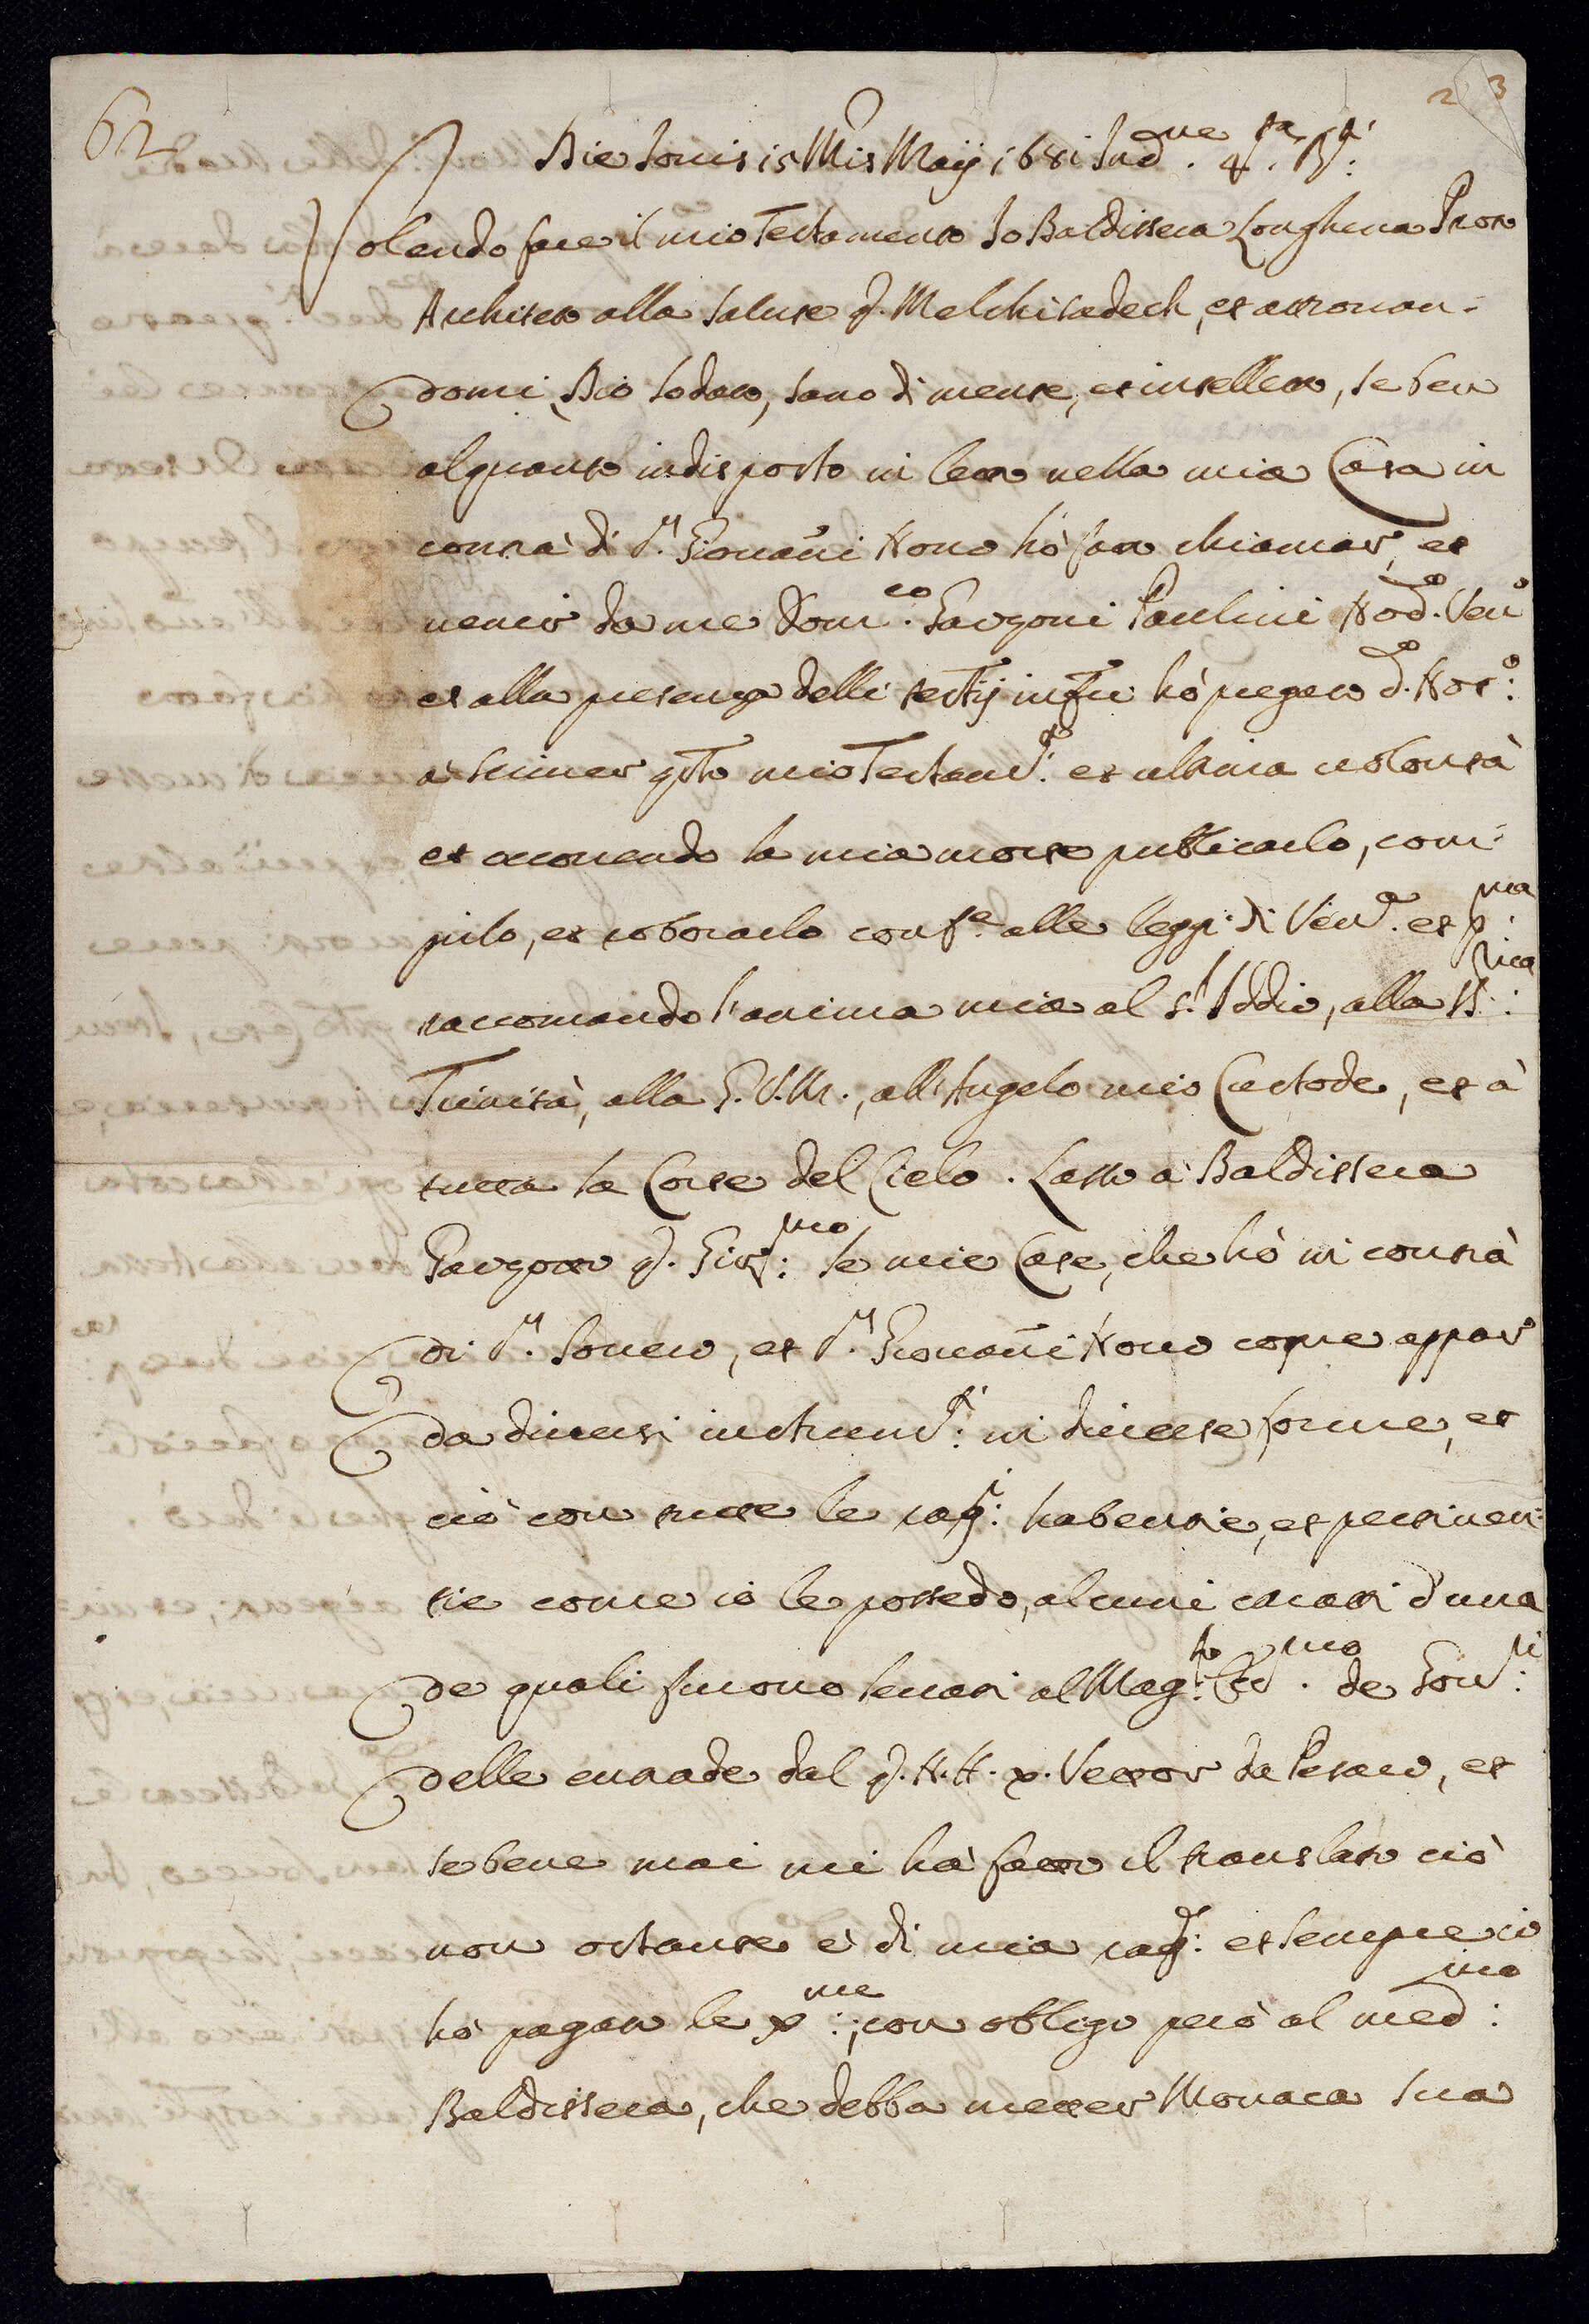 62
2 3
Die Iovis 15 Mis Maij 1681 Ind.ne 4.ta R.ti
Volendo fare il mio Testamento Io Baldissera Longhena Proto
Architeto alla Salute q. Melchisadech, et attrouan-
domi, Dio lodato, sano di mente, et intelletto, se ben
alquanto indisposto in letto nella mia Casa in
contrà di S. Giouanni Nouo hò fatto chiamar, et
venir da me Dom.co Garzoni Paulini Nod.o Ven.o
et alla presenza delli testij infti hò pregato d.o Nod.o:
à scriuer qto mio Testam.to: et ultima uolontà
et occorendo la mia morte publicarlo, com-
pirlo, et roborarlo conf.e alle leggi di Ven.a et p.ma:
raccomando l'anima mia al S. Iddio, alla SS.ma:
Trinità, alla G.V.M., all'Angelo mio Custode, et à
tutta la Corte del Cielo. Lasso à Baldissera
Garzoni q. Gir.mo: le mie Case, che hò in contrà
di S. Seuero, et S. Giouanni Nouo come appar
da diuersi instrum.ti: in diuerse forme, et
ciò con tutte le rag.i: habentie, et pertinen-
tie come io le possedo, alcuni caratti d'una
de quali furono leuati al Mag.to Ecc.mo de Gou.ri:
delle entrade dal q. N.H. x. Vettor da Pesaro, et
se bene mai mi hà fatto il translato ciò
non ostante è di mia rag.e: et sempre io
hò pagato le x.me:, con obligo però al med.mo:
Baldissera, che debba metter Monaca sua